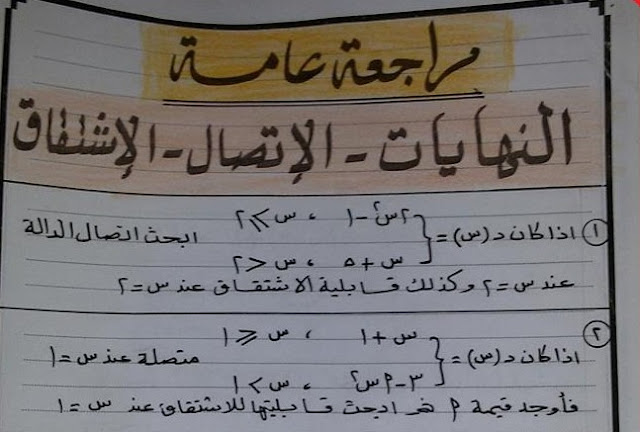 مراجعة عامة
النهايات - الإتصال - الإشتقاق
① اذا كان د(س) = { ٢س² - ١ ، س ≤ ٢ ابحث اتصال الدالة
س + ٥ ، س > ٢
عند س = ٢ وكذلك قابلية الاشتقاق عند س = ٢
② اذا كان د(س) = { س + ١ ، س ≥ ١ متصلة عند س = ١
٣ - م س² ، س < ١
فأوجد قيمة م ثم ابحث قابليتها للاشتقاق عند س = ١